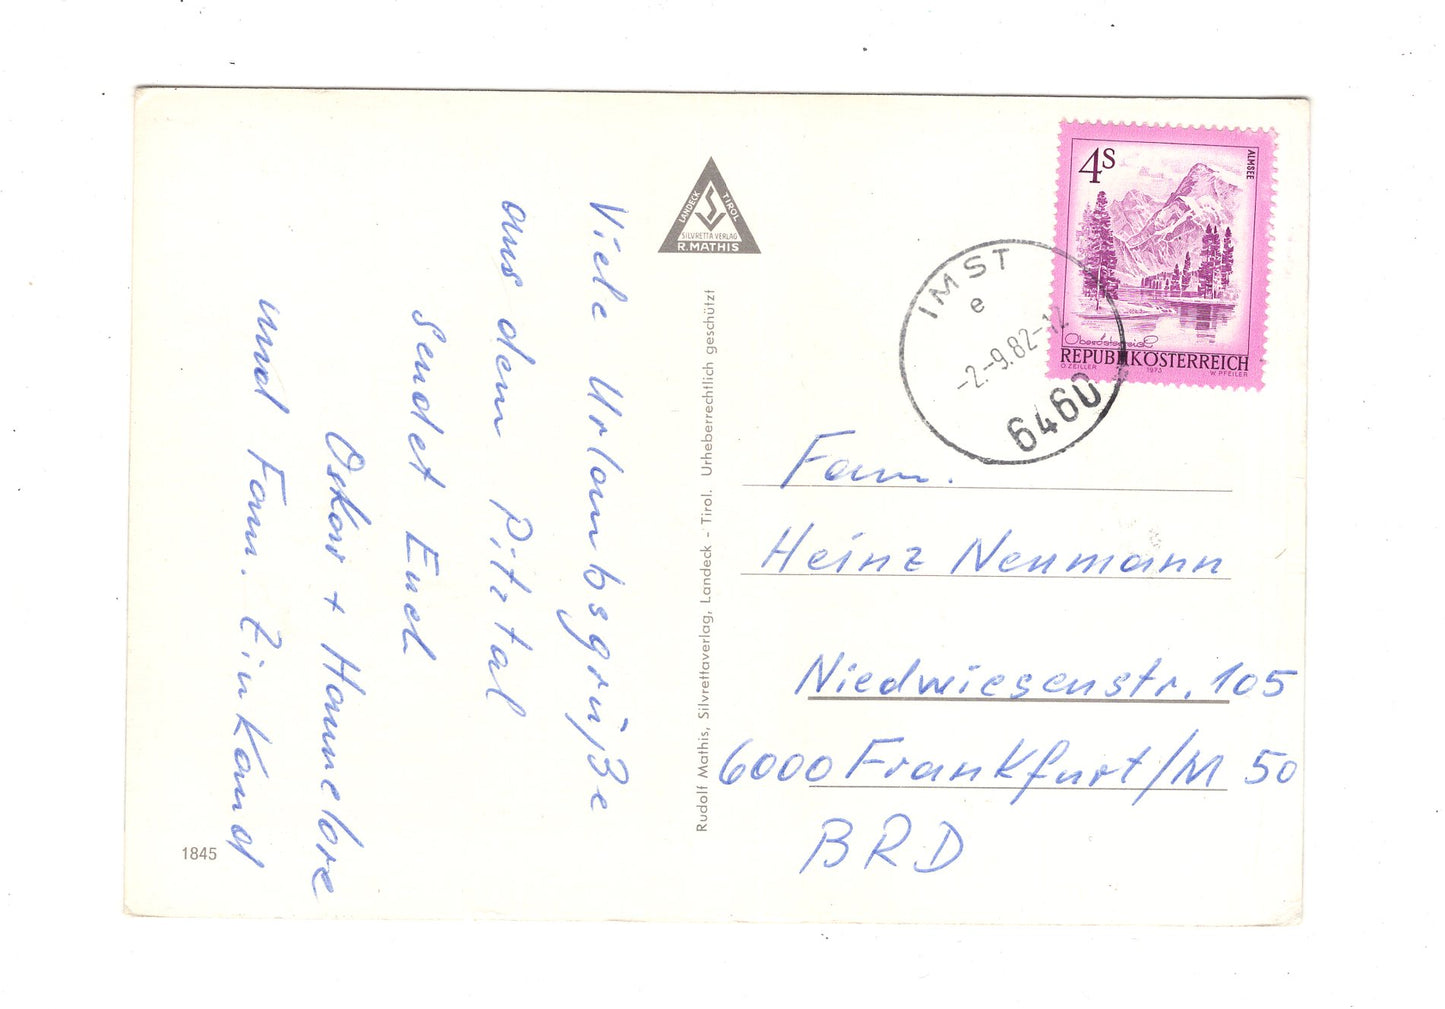 Viele Urlaubsgrüße
aus dem Pitztal
sendet Euch
Oskar + Hannelore
und Fam. Zinkand
1845
LANDECK TIROL
SILVRETTA VERLAG
R. MATHIS
Rudolf Mathis, Silvrettaverlag, Landeck - Tirol. Urheberrechtlich geschützt
4 S
ALMSEE
Oberösterreich
REPUBLIK ÖSTERREICH
O. ZEILLER 1973 W. PFEILER
IMST
e
-2.-9.82-12
6460
Fam.
Heinz Neumann
Niedwiesenstr. 105
6000 Frankfurt/M 50
BRD